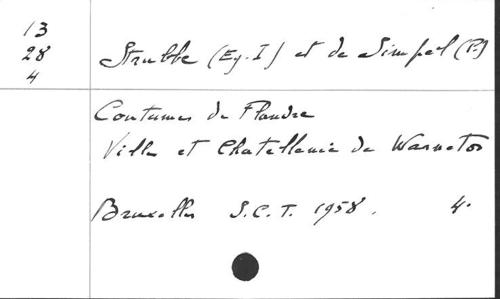 13
28
4
Strubbe (Eg. I) et de Simpel (P.)
Coutumes de Flandre
Ville et Chatellenie de Warneton
Bruxelles S.C.T. 1958. 4°